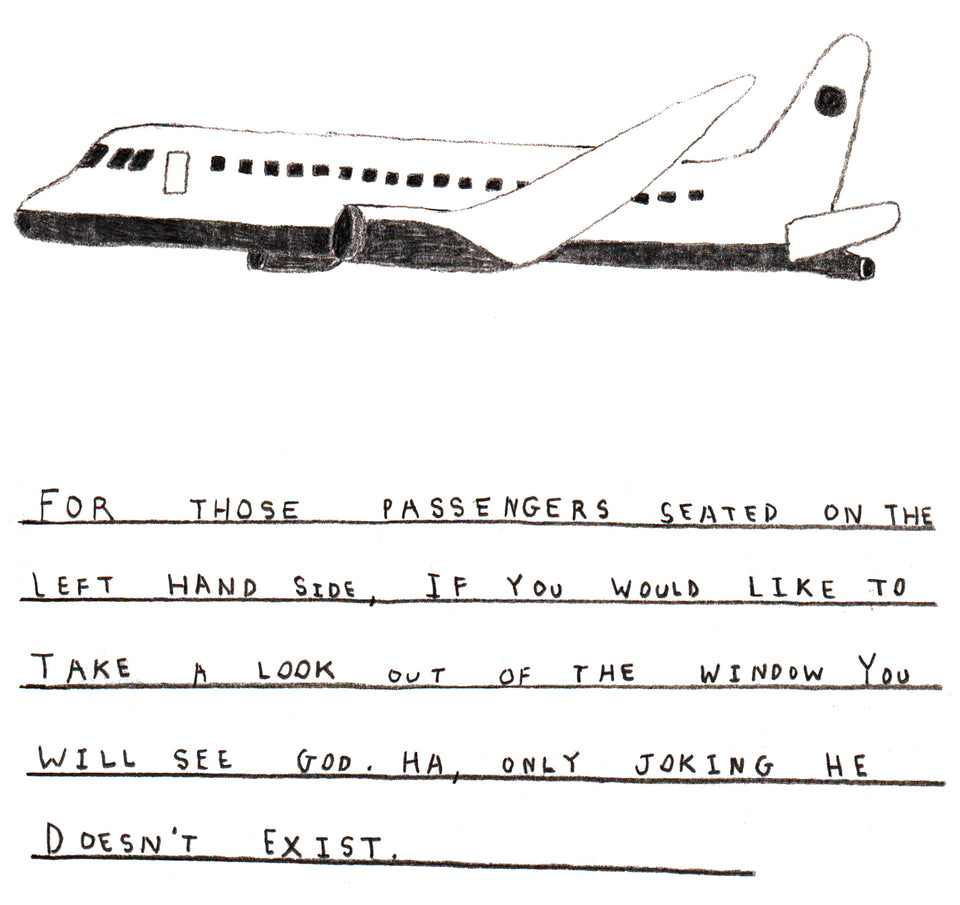 FOR THOSE PASSENGERS SEATED ON THE
LEFT HAND SIDE, IF YOU WOULD LIKE TO
TAKE A LOOK OUT OF THE WINDOW YOU
WILL SEE GOD. HA, ONLY JOKING HE
DOESN'T EXIST.